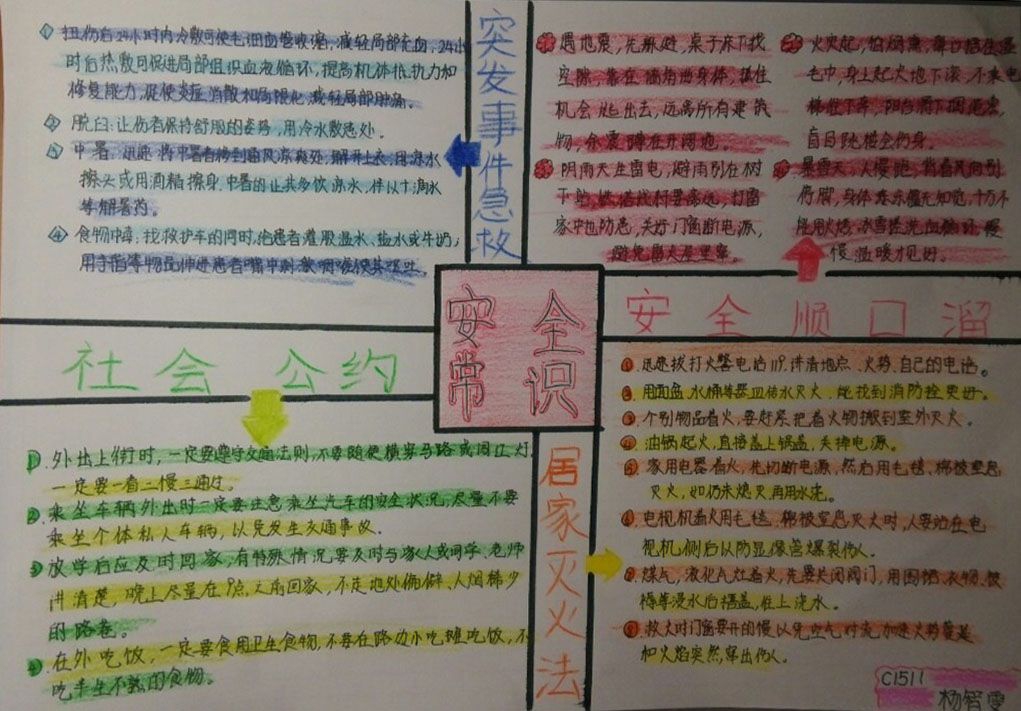 突发事件急救
扭伤后24小时内冷敷可使毛细血管收缩，减轻局部充血，24小
时后热敷可促进局部组织血液循环，提高机体抵抗力和
修复能力，促使炎症消散和局限化，减轻局部肿痛。
② 脱臼：让伤者保持舒服的姿势，用冷水敷患处。
中暑：迅速将中暑者移到通风凉爽处，解开上衣，用凉水
擦头或用酒精擦身，中暑的让其多饮凉水，伴以十滴水
等解暑药。
④ 食物中毒：找救护车的同时，给患者灌服温水、盐水或牛奶；
用手指等物品伸进患者嘴中刺激咽喉使其呕吐。
遇地震，先躲避，桌子床下找
空隙，靠在墙角曲身体，抓住
机会逃出去，远离所有建筑
物，余震蹲在开阔地。
阴雨天生雷电，避雨别在树
下站，铁塔线杆要离远，打雷
家中也防患，关好门窗断电源，
避免雷火屋里窜。
火灾起，怕烟熏，鼻口捂住湿
毛巾，身上起火地下滚，不乘电
梯往下奔，阳台滑下捆绳索，
盲目跳楼会伤身。
暴雪天，人慢跑，背着风向别
停脚，身体冻坏僵无知觉，千万不
能用火烧，冰雪搓洗血循环，慢
慢温暖才见好。
安全顺口溜
安全
常识
社会公约
① 外出上街时，一定要遵守交通法则，不要随便横穿马路或闯红灯，
一定要一看二慢三通过。
② 乘坐车辆外出时一定要注意乘坐汽车的安全状况，尽量不要
乘坐个体私人车辆，以免发生交通事故。
③ 放学后应及时回家，有特殊情况要及时与家人或同学、老师
讲清楚，晚上尽量在9点之前回家，不走地处偏僻、人烟稀少
的路巷。
④ 在外吃饭，一定要食用卫生食物，不要在路边小吃摊吃饭，不
吃半生不熟的食物。
居家灭火法
① 迅速拨打火警电话119，讲清地点、火势、自己的电话。
② 用面盆、水桶等器皿传水灭火，能找到消防栓更好。
③ 个别物品着火，要赶紧把着火物搬到室外灭火。
④ 油锅起火，直接盖上锅盖，关掉电源。
⑤ 家用电器着火，先切断电源，然后用毛毯、棉被窒息
灭火，如仍未熄灭再用水浇。
⑥ 电视机着火用毛毯、棉被窒息灭火时，人要站在电
视机侧后以防显像管爆裂伤人。
⑦ 煤气，液化气灶着火，先要关闭阀门，用围裙、衣物、被
褥等浸水后捂盖，往上浇水。
⑧ 救火时门窗要开的慢以免空气对流加速火势蔓延
加火焰突然窜出伤人。
C1511
杨智雯